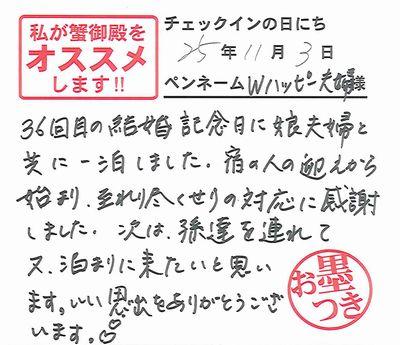 私が蟹御殿を
オススメ
します!!
チェックインの日にち
25年11月3日
ペンネームWハッピー夫婦様
36回目の結婚記念日に娘夫婦と
共に一泊しました。宿の人の迎えから
始まり、至れり尽くせりの対応に感謝
しました。次は、孫達を連れて
又、泊まりに来たいと思い
ます。いい思い出をありがとうござ
います。
お墨つき